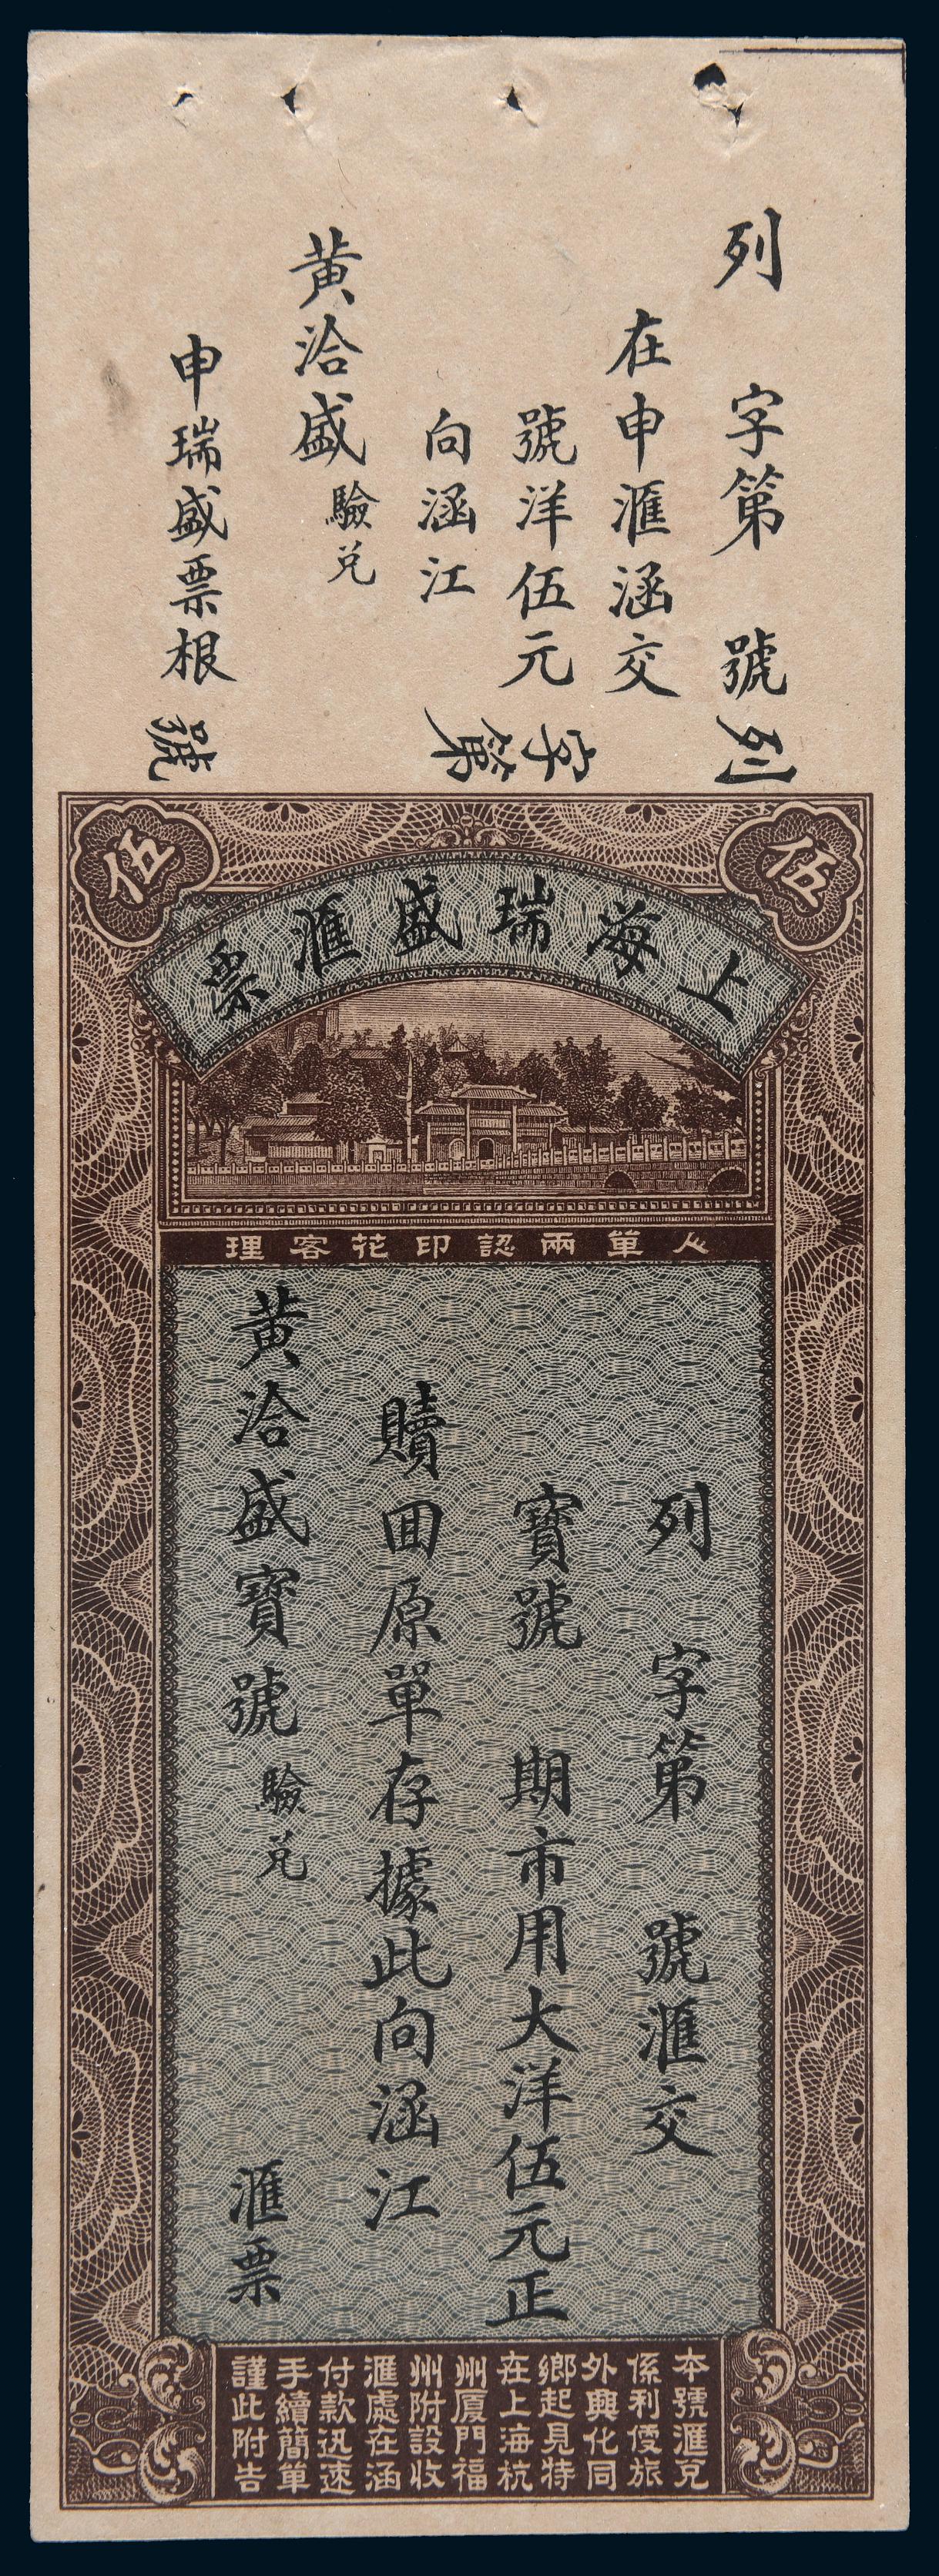 列 字第 號
在申滙涵交
號洋伍元
向涵江
黃洽盛驗兑
申瑞盛票根
列 字第 號
伍 伍
上海瑞盛滙票
人單兩認印花客理
列 字第 號滙交
寶號 期市用大洋伍元正
贖囬原單存據此向涵江
黃洽盛寶號驗兑 滙票
本號滙兑
係利便旅
外興化同
鄉起見特
在上海杭
州厦門福
州附設收
滙處在涵
付款迅速
手續簡單
謹此附告